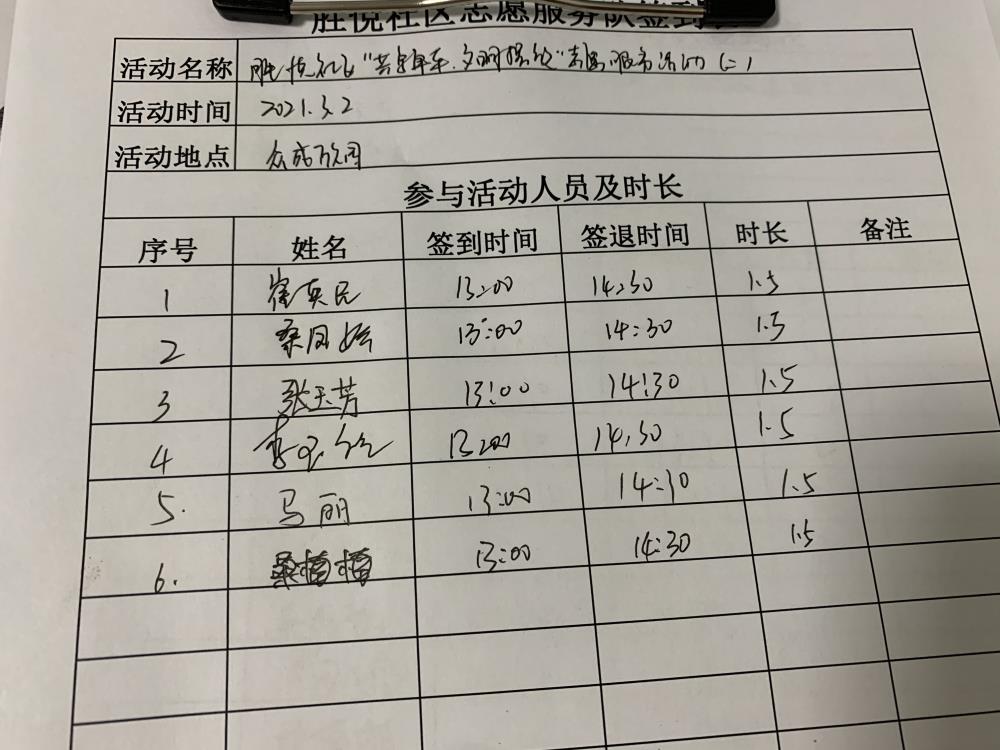 胜悦社区志愿服务队签到
活动名称 胜悦社区"共享单车.文明摆放"志愿服务活动(二)
活动时间 2021.3.2
活动地点 众成
参与活动人员及时长
序号 姓名 签到时间 签退时间 时长 备注
1 崔英民 13:00 14:30 1.5
2 桑凤 13:00 14:30 1.5
3 张玉芳 13:00 14:30 1.5
4 李 13:00 14:30 1.5
5. 马丽 13:00 14:30 1.5
6. 13:00 14:30 1.5